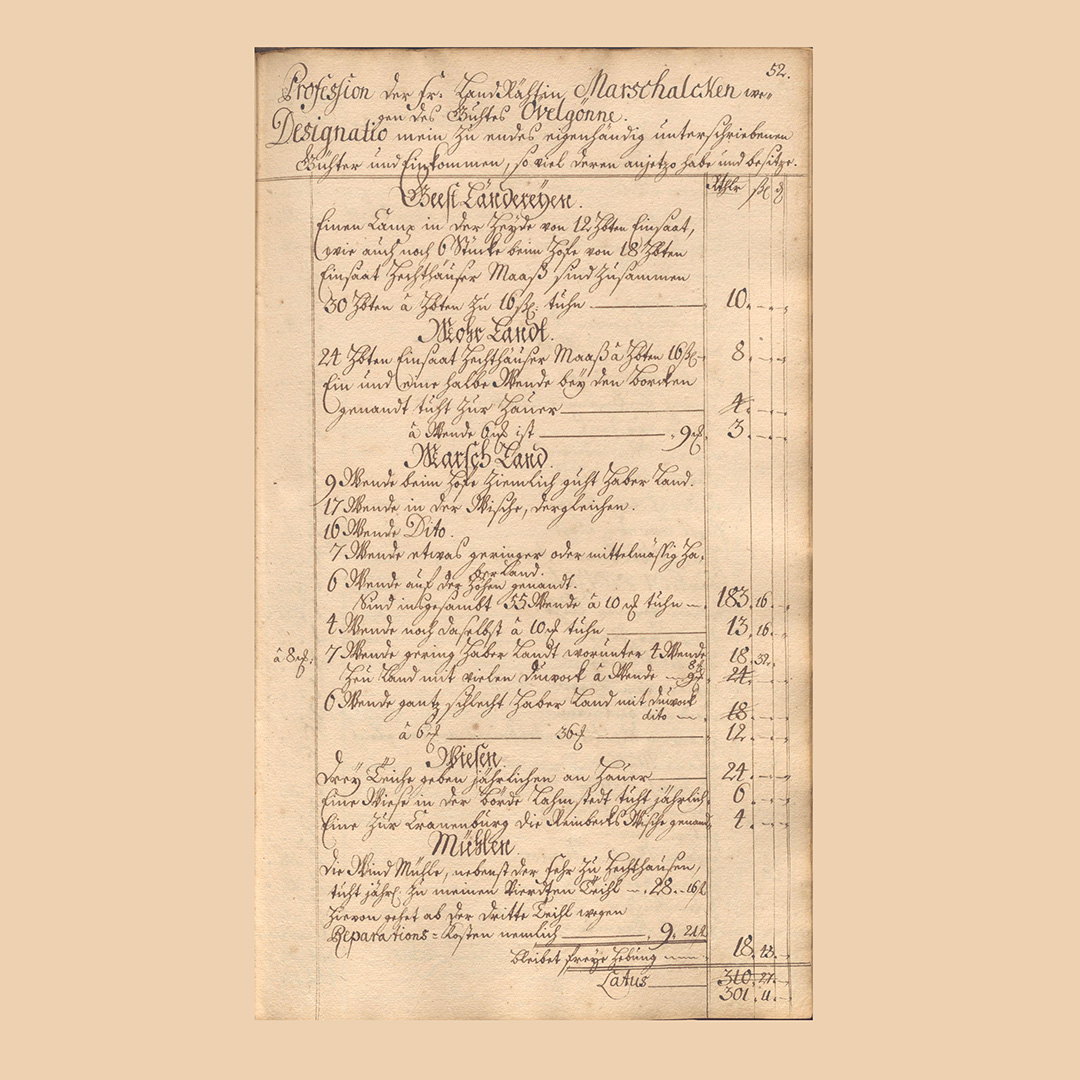 52.
Profession der Fr. LandRähtin Marschalcken we-
gen des Guhtes Ovelgönne.
Designatio mein zu endes eigenhändig unterschriebenen
Gühter und Einkommen, so viel deren anjetzo habe und besitze.
Rthlr ßl
Geest Ländereyen.
Einen Camp in der Heyde von 12 Hbten Einsaat,
wie auch noch 6 Stücke beim Hofe von 18 Hbten
Einsaat Hechthäuser Maaß sind zusammen
30 Hbten â Hbten zu 16 ßl. tuhn 10.
Mohr Landt.
24 Hbten Einsaat Hechthäuser Maaß â Hbten 16 ßl. 8.
Ein und eine halbe Wende bey den Borcken
genandt tuht zur Häuer 4.
â Wende 6 ist 9 3.
Marsch Land.
9 Wende beim Hofe ziemlich guht Haber Land.
17 Wende in der Wische, dergleichen.
16 Wende Dito.
7 Wende etwas geringer oder mittelmässig Ha-
ber Land.
6 Wende auf der Höhen genandt.
Sind insgesambt 55 Wende â 10 tuhn 183. 16.
4 Wende noch daselbst â 10 tuhn 13. 16.
â 8 7 Wende gering Haber Landt worunter 4 Wende 18. 32.
Heu Land mit vielen Duwock â Wende 8 9 24.
6 Wende gantz schlecht Haber Land mit Duwock
dito 18
â 6 36 12.
Wiesen.
Drey Teiche geben jährlichen an Häuer 24.
Eine Wiese in der Börde Lahmstedt tuht jährlich 6.
Eine zur Cranenburg die Reinbecks Wische genand 4.
Mühlen.
Die Wind Mühle, nebenst der Fehr zu Hechthausen,
tuht jährl. zu meinen Vierdten Teihl 28. 16 ßl
Hievon gehet ab der dritte Teihl wegen
Reparations=Kosten nemlich 9. 21
bleibet freye Hebung 18. 43.
Latus 310. 27.
301. 11.